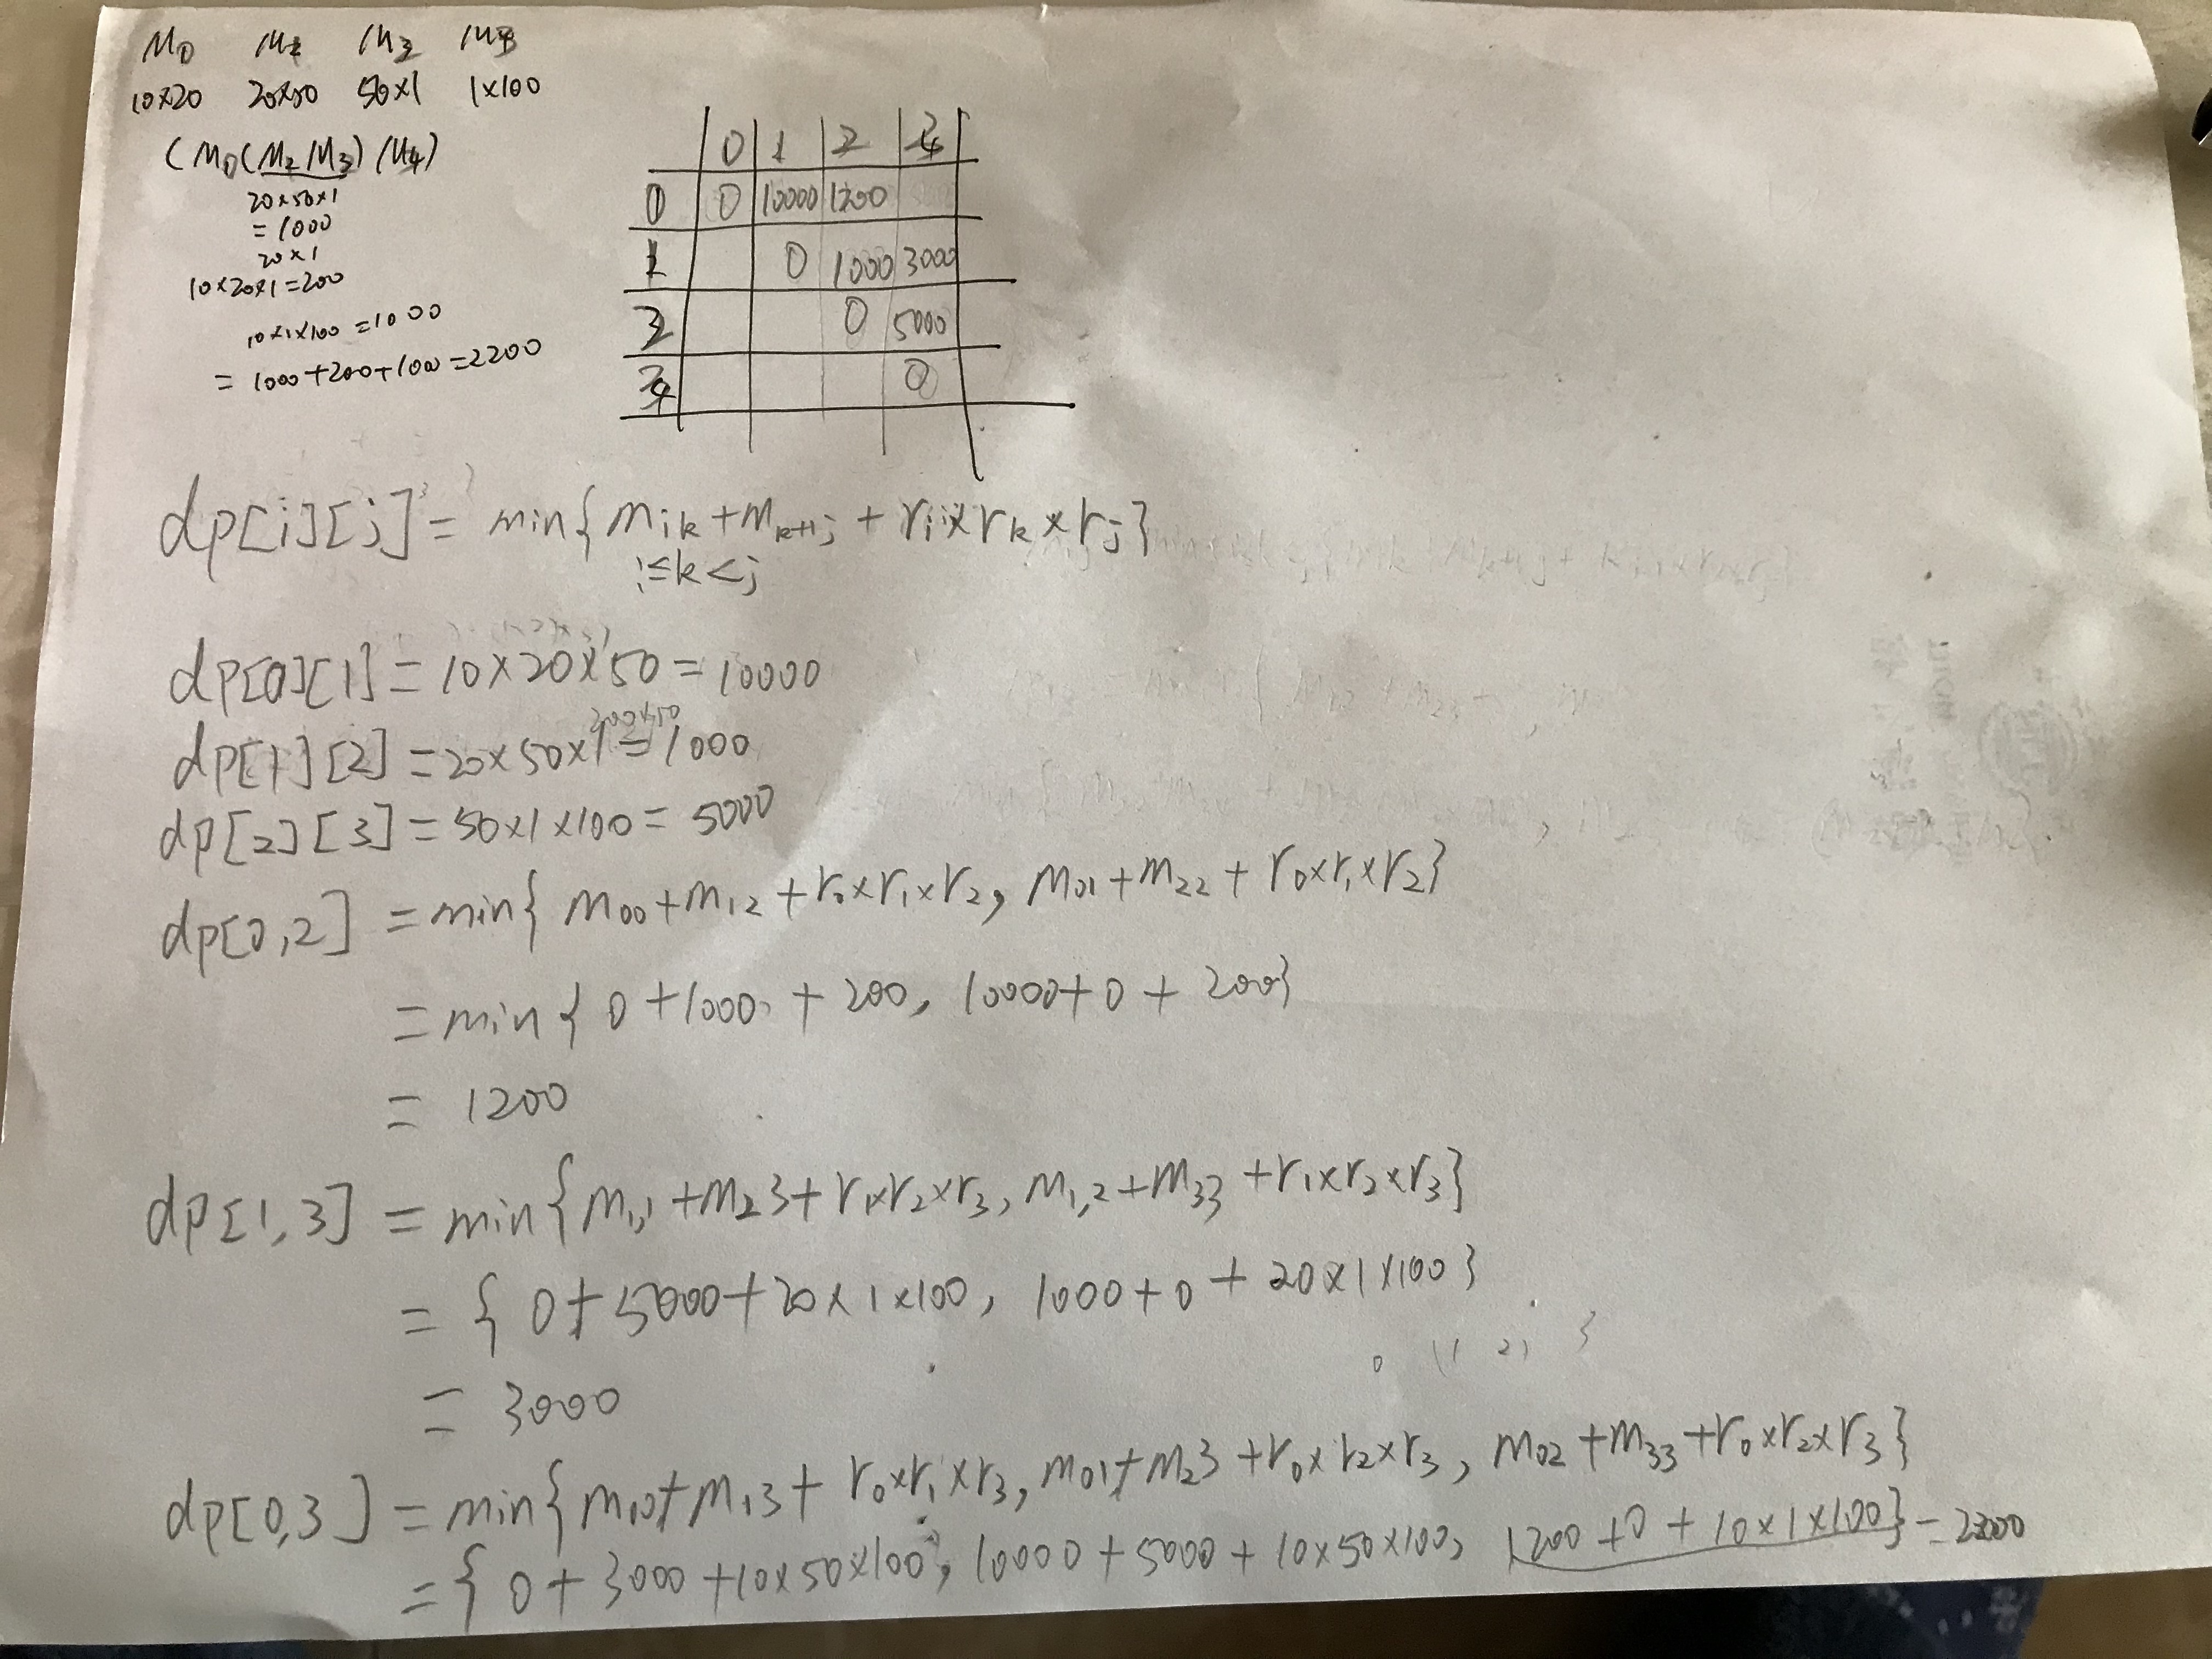 M0 M1 M2 M3
10×20 20×50 50×1 1×100
(M0(M2M3)M4)
20×50×1
=1000
20×1
10×20×1=200
10×1×100=1000
= 1000+200+1000=2200
0 1 2 3
0 0 10000 1200
1 0 1000 3000
2 0 5000
3 0
dp[i][j] = min{mik+mk+1j + ri×rk×rj}
i≤k<j
dp[0][1] = 10×20×50=10000
200×50
dp[1][2] =20×50×1=1000
dp[2][3] =50×1×100= 5000
dp[0,2] =min{ m00+m12+r0×r1×r2, m01+m22+r0×r1×r2}
=min{ 0+1000+200, 10000+0+200}
= 1200
dp[1,3] = min{m1,1+m23+r1×r2×r3, m1,2+m33+r1×r2×r3}
= { 0+5000+20×1×100, 1000+0+20×1×100}
0 (1 2) }
= 3000
dp[0,3] = min{m00+m13+ r0×r1×r3, m01+m23+r0×r2×r3, m02+m33+r0×r2×r3}
={ 0+3000+10×50×100, 10000+5000+10×50×100, 1200+0+10×1×100}=2200